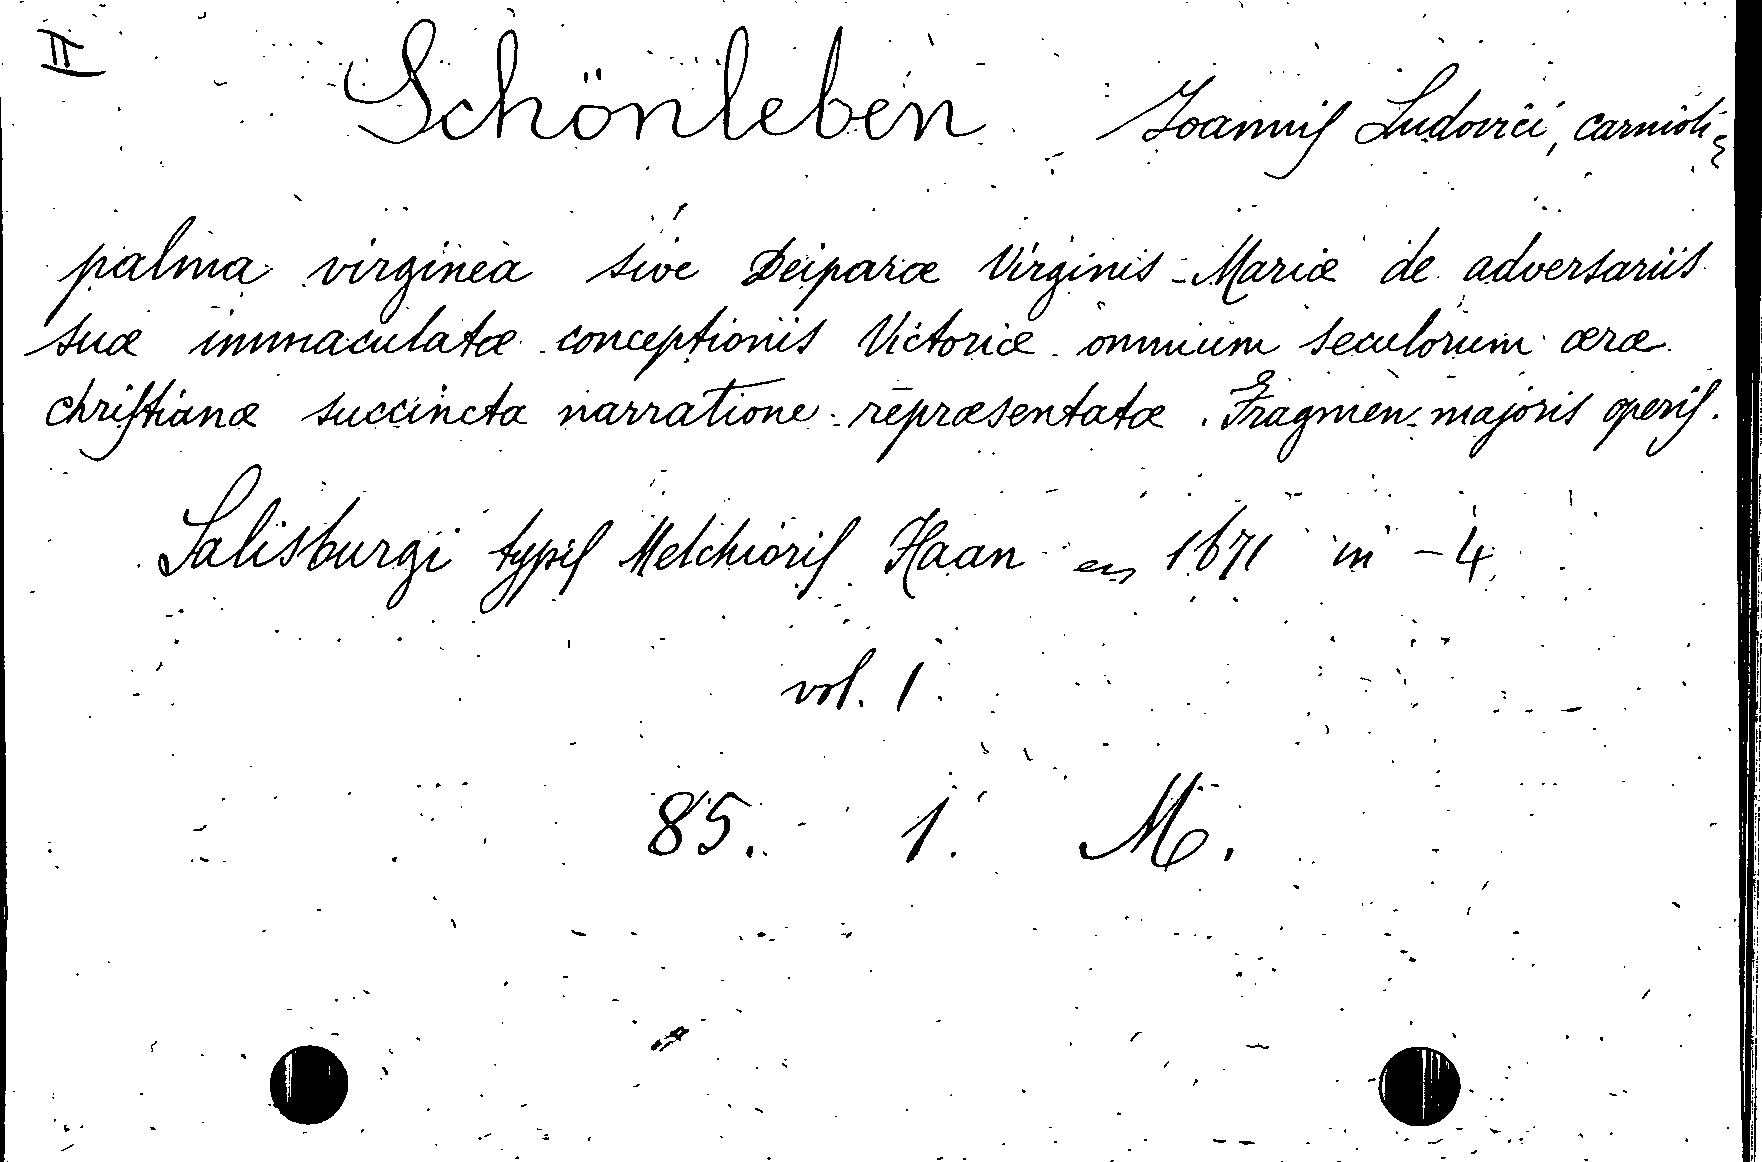 II
Schönleben Joannis Ludovici, carnioli
palma virginea sive Deiparæ Virginis Mariæ de adversariis
suæ immaculatæ conceptionis Victoriæ omnium seculorum æræ
christianæ succincta narratione repræsentatæ. Fragmen majoris operis.
Salisburgi typis Melchioris Haan en 1671 in -4
vol. 1.
85. 1. M.